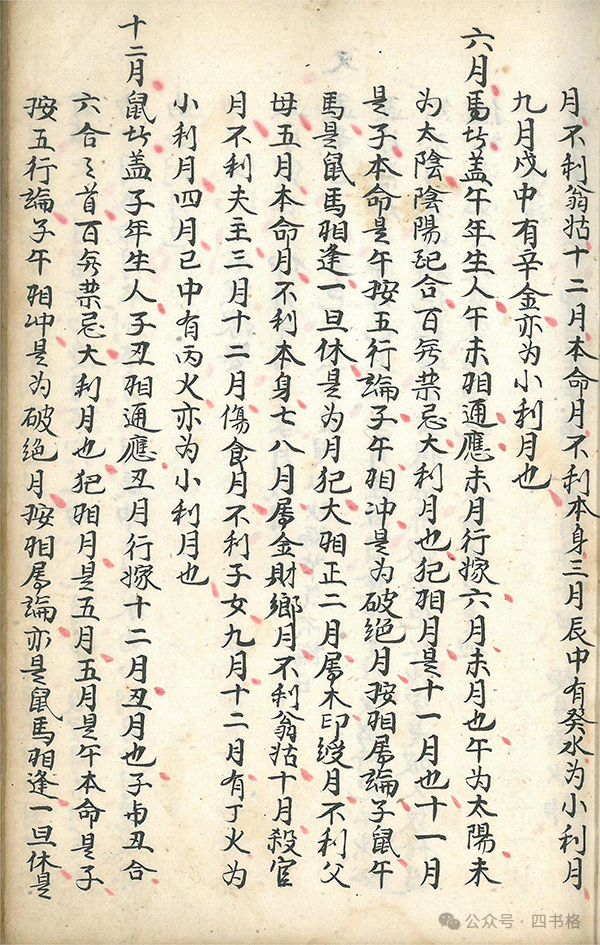 月不利翁姑十二月本命月不利本身三月辰中有癸水为小利月
九月戌中有辛金亦为小利月也
六月馬 盖午年生人午未相通應未月行嫁六月未月也午为太陽未
为太陰陰陽 合百無禁忌大利月也犯相月是十一月也十一月
是子本命是午按五行論子午相冲是为破绝月按相属論子鼠午
馬是鼠馬相逢一旦休是为月犯大相正二月属木印绶月不利父
母五月本命月不利本身七八月属金財鄉月不利翁姑十月殺官
月不利夫主三月十二月傷食月不利子女九月十二月有丁火为
小利月四月巳中有丙火亦为小利月也
十二月鼠 盖子年生人子丑相通應丑月行嫁十二月丑月也子与丑合
六合之首百無禁忌大利月也犯相月是五月五月是午本命是子
按五行論子午相冲是为破绝月按相属論亦是鼠馬相逢一旦休是
公众号·四书格